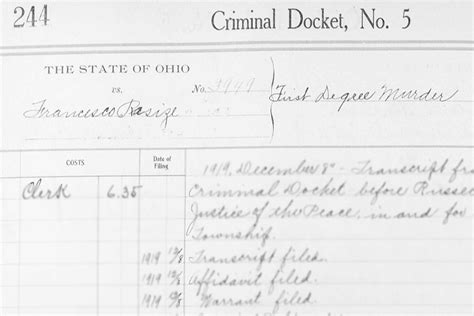 244
Criminal Docket, No. 5
THE STATE OF OHIO
vs. No. 3949 First Degree Murder
Francesco Rasize
COSTS Date of Filing
1919, December 8" - Transcript fro
Clerk 6.35 Criminal Docket before Russe
Justice of the Peace, in and for
Township.
1919 12/8 Transcript filed.
1919 12/8 Affidavit filed.
1919 12/8 Warrant filed.